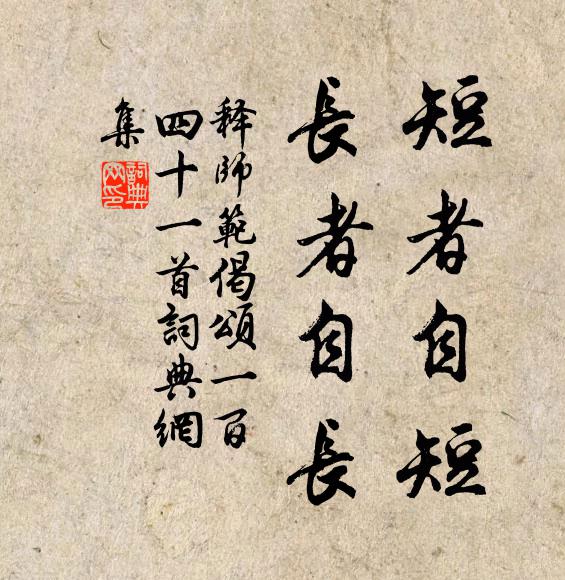 短者自短
長者自長
釋師範偈頌一百
四十一首詞典網
集
詞典網印